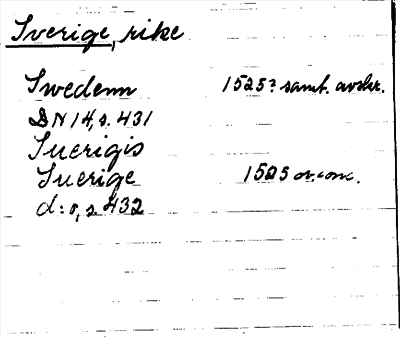 Sverige, rike
Swedenn 1525? samt. avskr.
DN 14, s. 431
Suerigis
Suerige 1525 or. conc.
d:o, s. 432